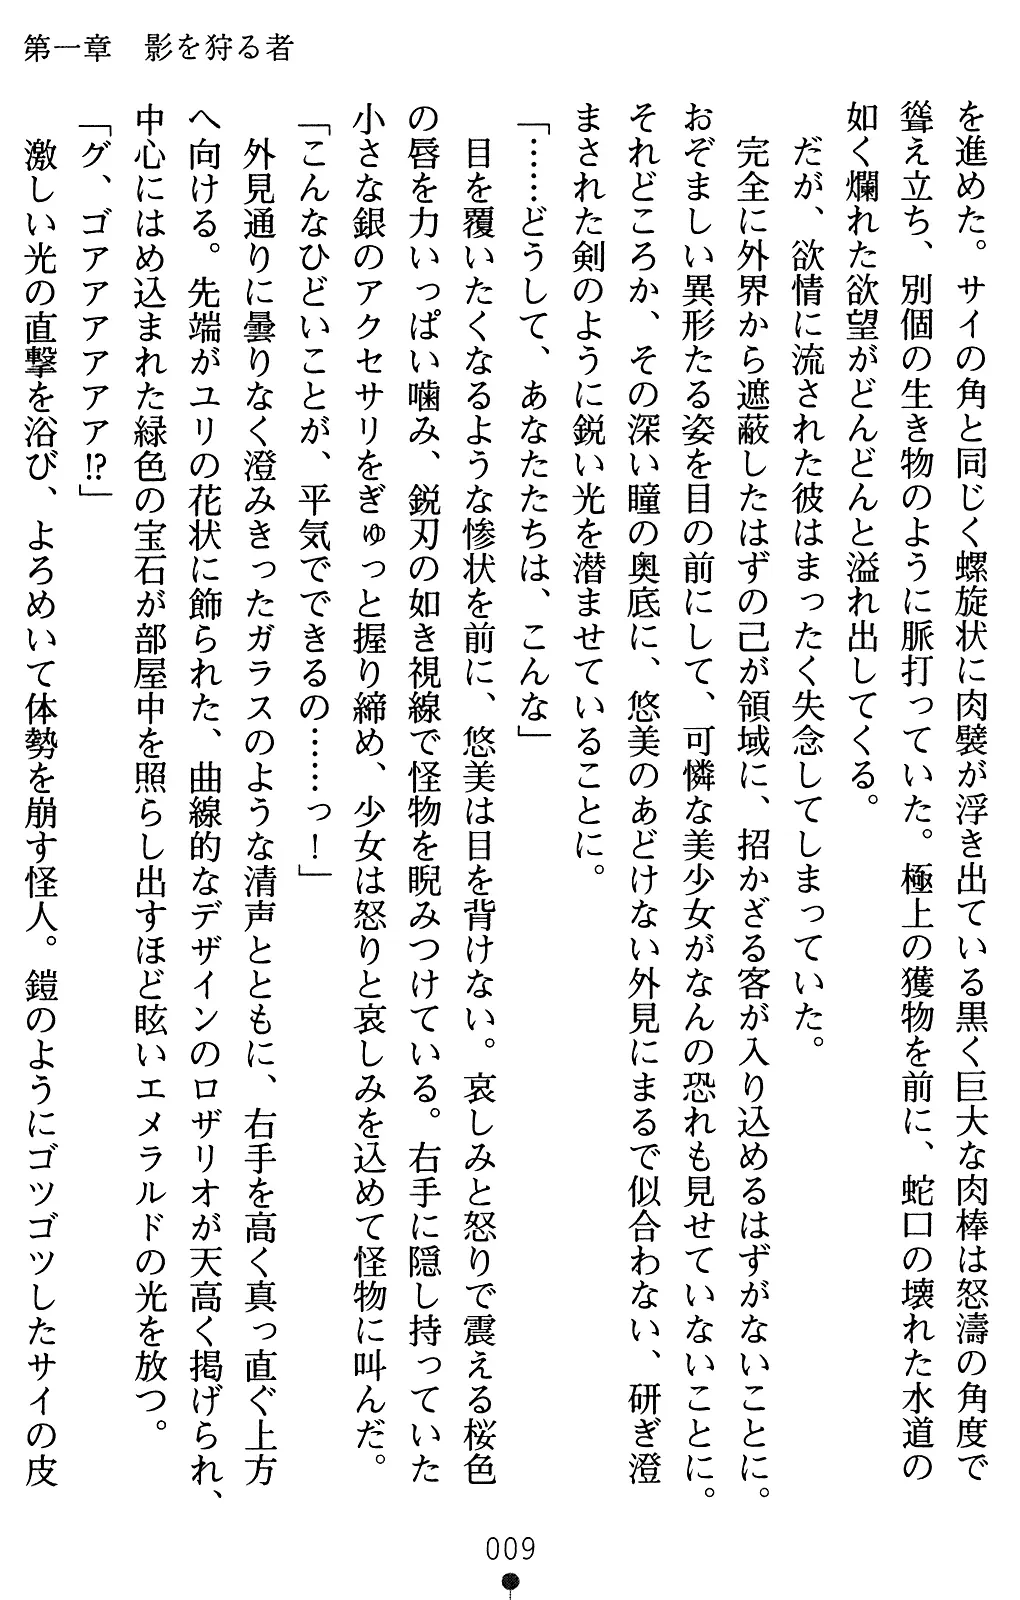 第一章　影を狩る者
を進めた。サイの角と同じく螺旋状に肉襞が浮き出ている黒く巨大な肉棒は怒濤の角度で
聳え立ち、別個の生き物のように脈打っていた。極上の獲物を前に、蛇口の壊れた水道の
如く爛れた欲望がどんどんと溢れ出してくる。
だが、欲情に流された彼はまったく失念してしまっていた。
完全に外界から遮蔽したはずの己が領域に、招かざる客が入り込めるはずがないことに。
おぞましい異形たる姿を目の前にして、可憐な美少女がなんの恐れも見せていないことに。
それどころか、その深い瞳の奥底に、悠美のあどけない外見にまるで似合わない、研ぎ澄
まされた剣のように鋭い光を潜ませていることに。
「……どうして、あなたたちは、こんな」
目を覆いたくなるような惨状を前に、悠美は目を背けない。哀しみと怒りで震える桜色
の唇を力いっぱい噛み、鋭刃の如き視線で怪物を睨みつけている。右手に隠し持っていた
小さな銀のアクセサリをぎゅっと握り締め、少女は怒りと哀しみを込めて怪物に叫んだ。
「こんなひどいことが、平気でできるの……っ！」
外見通りに曇りなく澄みきったガラスのような清声とともに、右手を高く真っ直ぐ上方
へ向ける。先端がユリの花状に飾られた、曲線的なデザインのロザリオが天高く掲げられ、
中心にはめ込まれた緑色の宝石が部屋中を照らし出すほど眩いエメラルドの光を放つ。
「グ、ゴアアアアアア!?」
激しい光の直撃を浴び、よろめいて体勢を崩す怪人。鎧のようにゴツゴツしたサイの皮
009